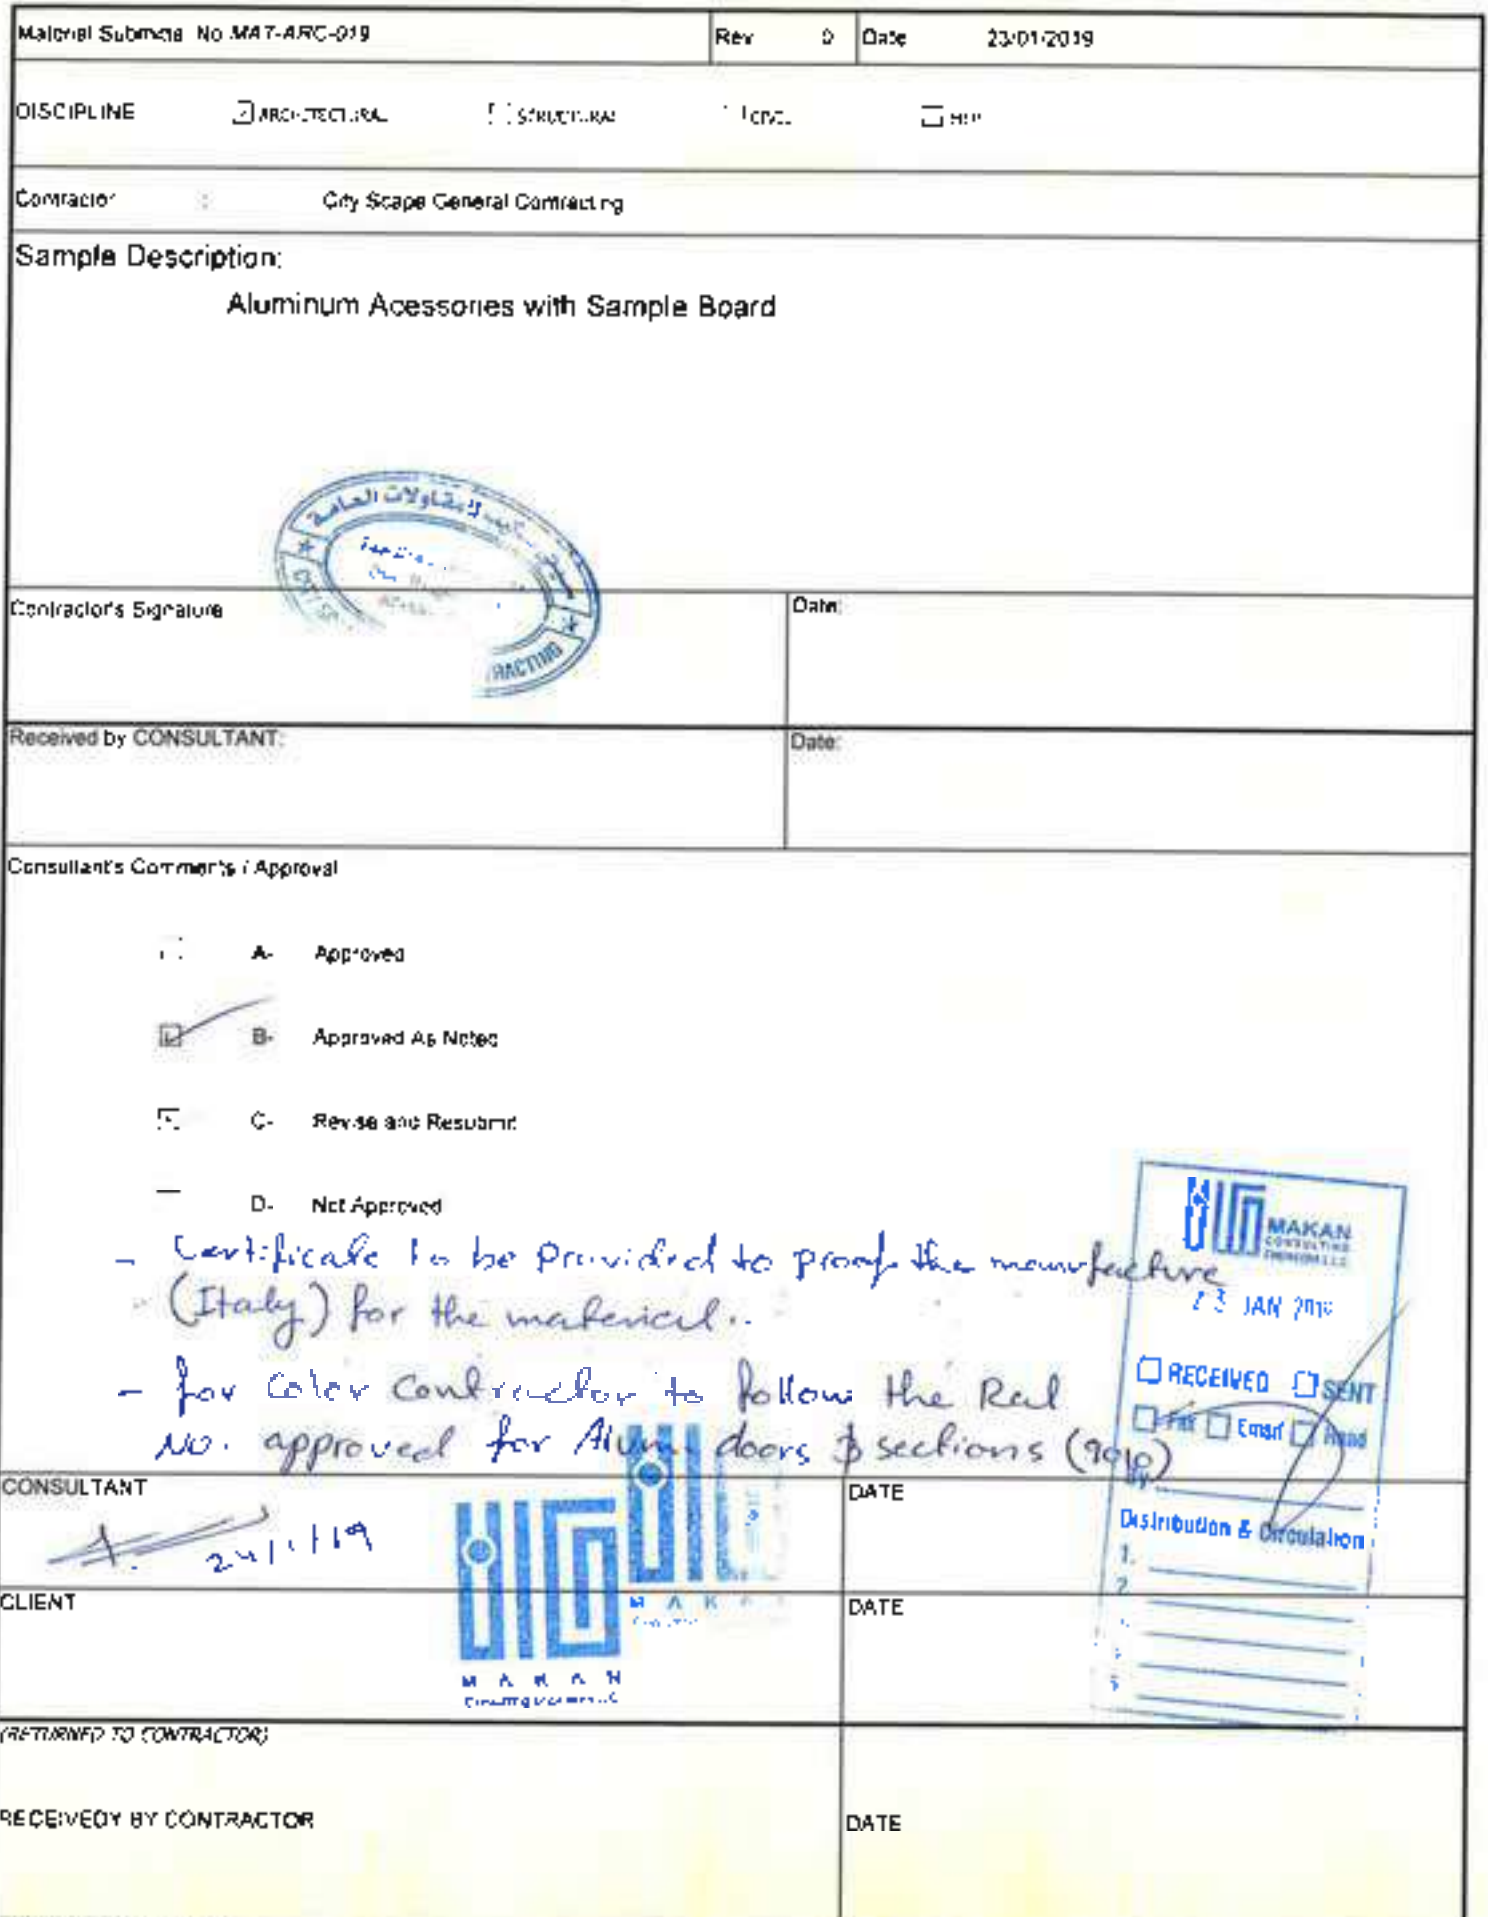 Material Submittal No MAT-ARC-019 Rev 0 Date 23/01/2019
DISCIPLINE ARCHITECTURAL STRUCTURAL CIVIL MEP
Contractor : City Scape General Contracting
Sample Description:
Aluminum Acessories with Sample Board
للمقاولات العامة
CITY
RACTING
Contractor's Signature Date:
Received by CONSULTANT: Date:
Consultant's Comments / Approval
A- Approved
B- Approved As Noted
C- Revise and Resubmit
D- Not Approved
- Certificate to be Provided to proof the manufacture
(Italy) for the material..
- for Color Contractor to follow the Ral
No. approved for Alum doors & sections (9010)
MAKAN
CONSULTING
ENGINEERS LLC
23 JAN 2019
RECEIVED SENT
Fax Email Hand
By
Distribution & Circulation
1.
2.
5
CONSULTANT DATE
24/1/19
MAKA
MAKAN
CLIENT DATE
(RETURNED TO CONTRACTOR)
RECEIVEDY BY CONTRACTOR DATE